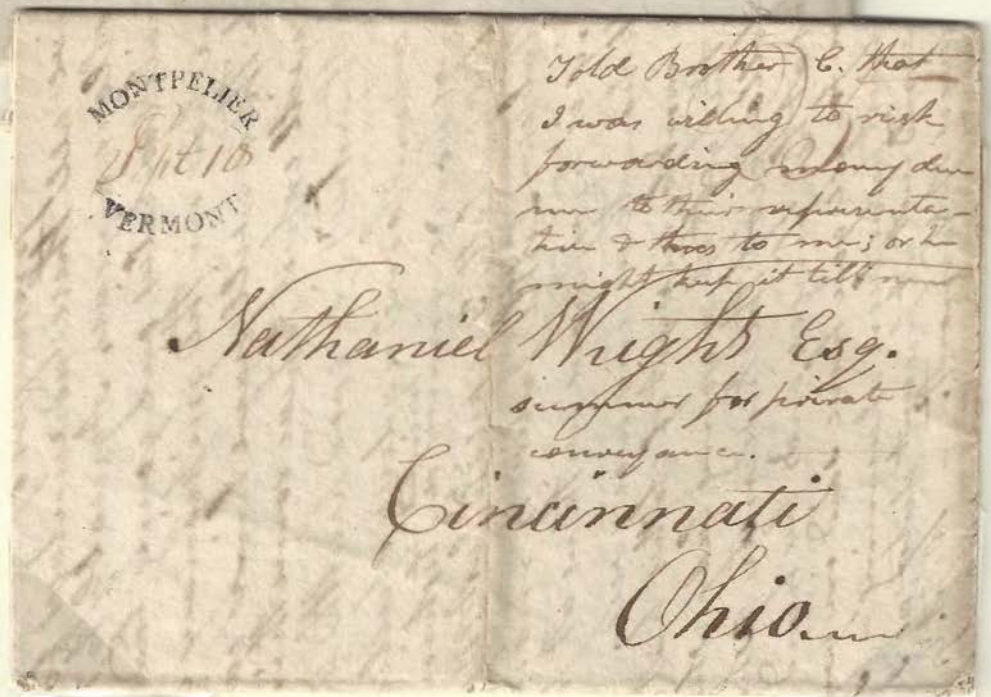 MONTPELIER
Sept 18
VERMONT
Told Brother C. that
I was willing to risk
forwarding money due
me to their representa-
tive & thus to me; or he
might keep it till next
Nathaniel Wright Esq.
summer for private
conveyance.
Cincinnati
Ohio